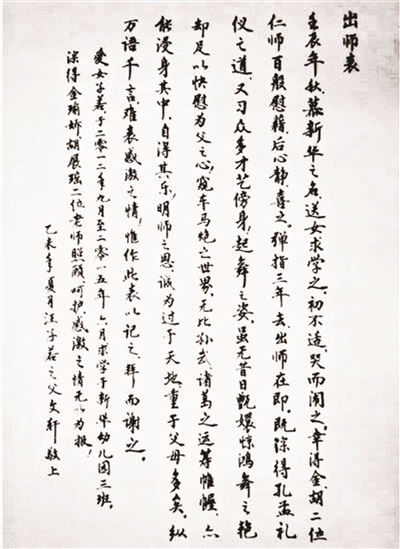 出师表
壬辰年秋,慕新华之名送女求学之,初不适,哭而闹之,幸得金胡二位
仁师百般慰藉,后心静,喜之。弹指三年去,出师在即,既深得孔孟礼
仪之道,又习众多才艺傍身!起舞之姿,虽无昔日甄嬛惊鸿舞之艳
却足以快慰为父之心!窥车马炮之世界,无比孙武、诸葛之运筹帷幄,亦
能浸身其中,自得其乐!明师之恩,诚为过于天地,重于父母多矣,纵
万语千言,难表感激之情!惟作此表以记之,拜而谢之。
爱女子于二零一二年九月至二零一五年六月求学于新华幼儿园三班,
深得金瑜娇、胡展瑶二位老师照顾、呵护,感激之情无以为报!
乙未年夏月汪子之父文轩敬上